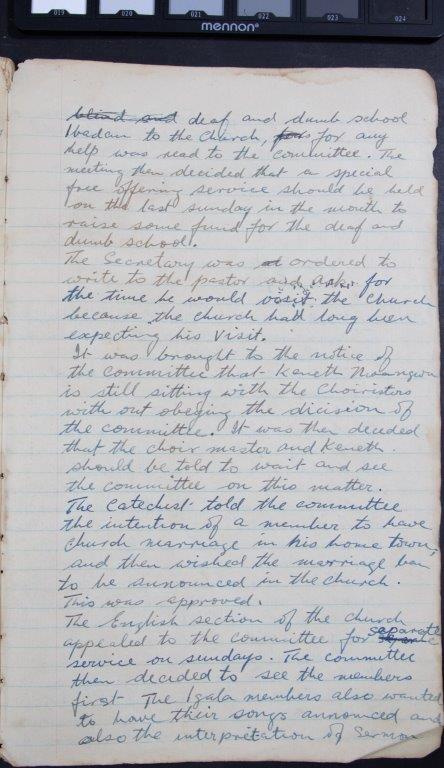 019 020 021 022 023 024
mennon
blind and deaf and dumb school
Ibadan to the church, for for any
help was read to the committee. The
meeting then decided that a special
free offering service should be held
on the last sunday in the month to
raise some fund for the deaf and
dumb school.
The Secretary was at ordered to
write to the pastor and ask for
the time he would visit the church
because the church had long been
expecting his visit.
It was brought to the notice of
the committee that Keneth
is still sitting with the Choiristors
with out obeying the dicision of
the committee. It was then decided
that the choir master and Keneth
should be told to wait and see
the committee on this matter.
The Catechist told the committee
the intention of a member to have
church marriage in his home town,
and then wished the marriage ban
to be announced in the church.
This was approved.
The English section of the church
appealed to the committee for separate
service on sundays. The committee
then decided to see the members
first The Igala members also wanted
to have their songs announced and
also the interpretation of Sermon